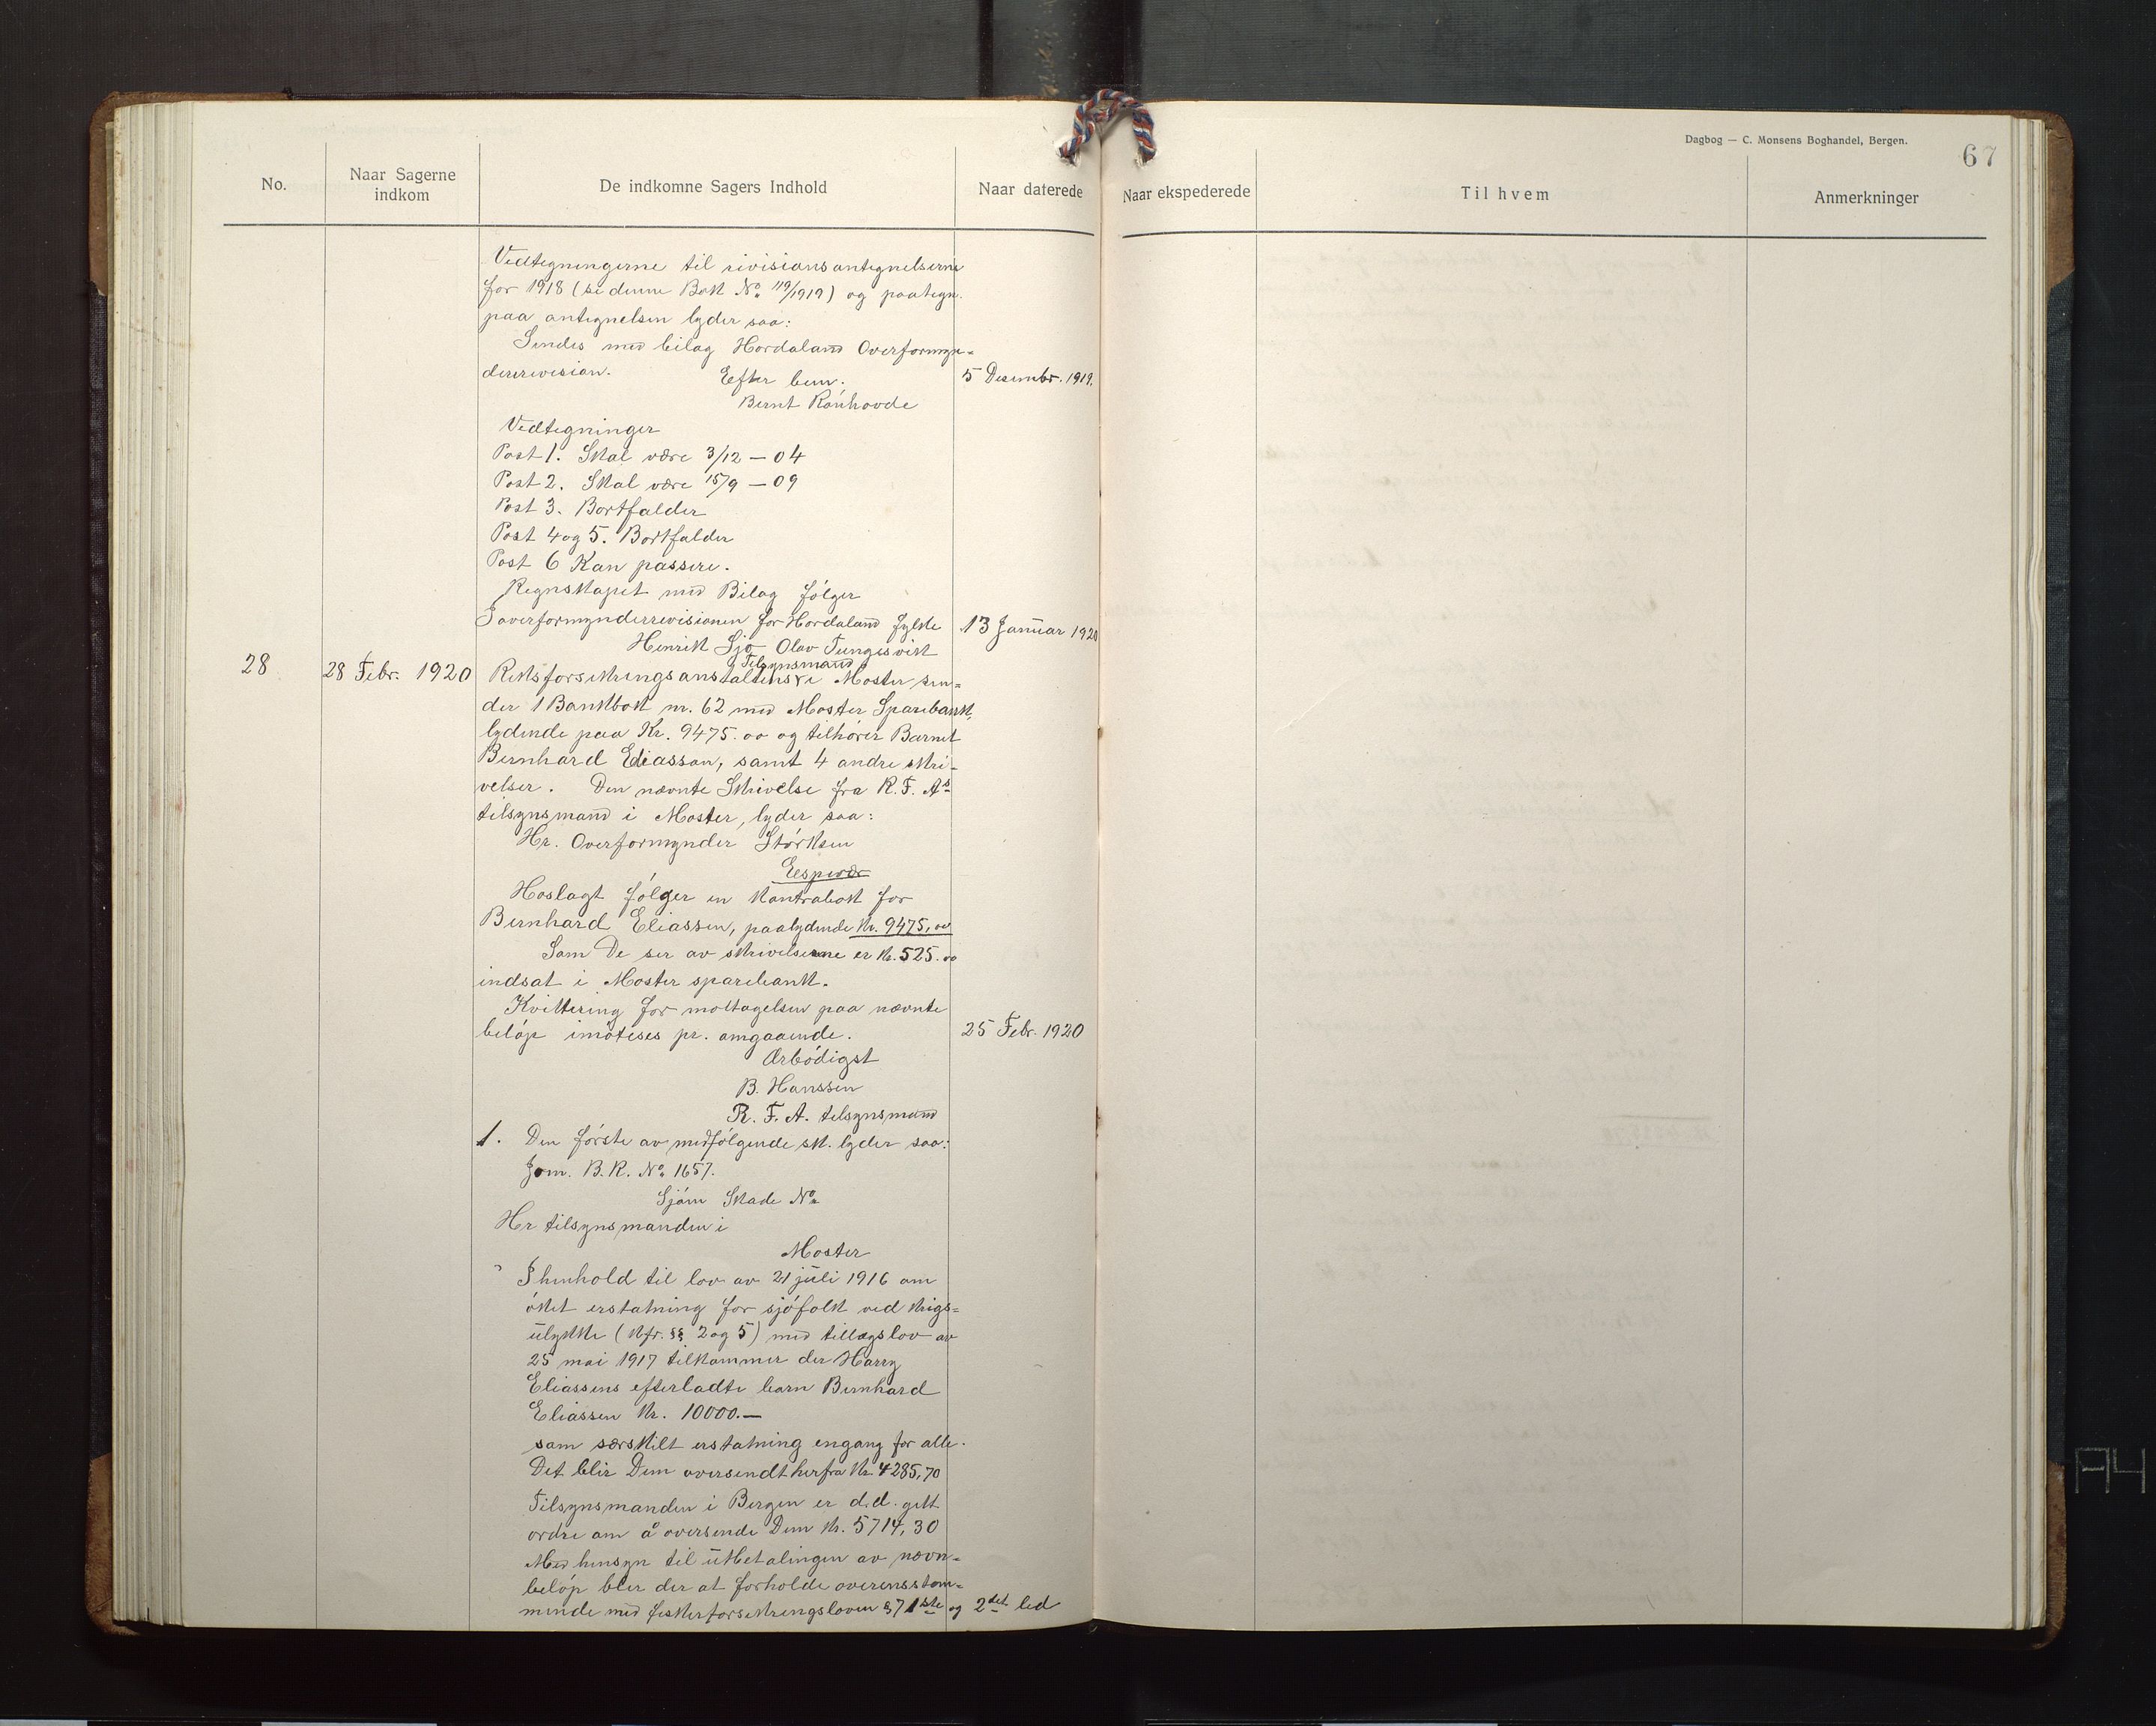 Dagbog — C. Monsens Boghandel, Bergen.
67
No.
Naar Sagerne indkom
De indkomne Sagers Indhold
Naar daterede
Naar ekspederede
Til hvem
Anmerkninger
Vedtegningerne til revisionsantegnelserne
for 1918 (se denne Bok No. 119/1919) og paategn.
paa antegnelsen lyder saa:
Sendes med bilag Hordaland Overformyn=
derrevision.
Efter bem. 5 Desembr. 1919.
Bernt Rönhovde
Vedtegninger
Post 1. Skal være 3/12 — 04
Post 2. Skal være 15/9 — 09
Post 3. Bortfalder
Post 4 og 5. Bortfalder
Post 6 Kan passere.
Regnskapet med Bilag følger
I overformynderrevisionen for Hordaland fylke 13 Januar 1920
Henrik Sjo Olav Tungesvik
Tilsynsmand
28 28 Febr. 1920 Riksforsikringsanstaltens i Moster sen=
der 1 Bankbok nr. 62 med Moster Sparebank,
lydende paa Kr. 9475.00 og tilhører Barnet
Bernhard Eliasson, samt 4 andre skri-
velser. Den nævnte Skrivelse fra R. F. As
tilsynsmand i Moster, lyder saa:
Hr. Overformynder Størksen
Espevær
Hoslagt følger en Kontrabok for
Bernhard Eliassen, paalydende Kr. 9475,00
Som De ser av skrivelserne er Kr. 525.00
indsat i Moster sparebank.
Kvittering for mottagelsen paa nævnte
beløp imøteses pr. omgaaende. 25 Febr. 1920
Ærbødigst
B. Hanssen
R. F. A. tilsynsmand
1. Den første av medfølgende sk. lyder saa:
Jom. B. R. No 1657.
Sjøm Skade No
Hr tilsynsmanden i
Moster
I henhold til lov av 21 juli 1916 om
øket erstatning for sjøfolk ved krigs=
ulykke (kfr. §§ 2 og 5) med tillægslov av
25 mai 1917 tilkommer der Harry
Eliassens efterladte barn Bernhard
Eliassen Kr. 10000.—
som særskilt erstatning engang for alle.
Det blir Dem oversendt herfra Kr. 4285,70
Tilsynsmanden i Bergen er d.d. gitt
ordre om å oversende Dem Kr. 5714,30
Med hensyn til utbetalingen av nævn=
beløp blir der at forholde overensstem=
mende med fiskerforsikringsloven § 7 1ste og 2det led